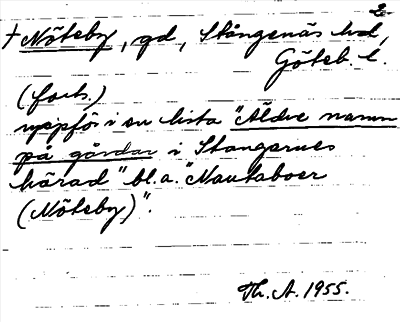 2.
† Nöteby, gd, Stångenäs hd,
Göteb. l.
(forts.)
uppför i en lista "Äldre namn
på gårdar i Stangarnes
härad" bl.a. "Nautaboer
(Nöteby)".
Th. A. 1955.